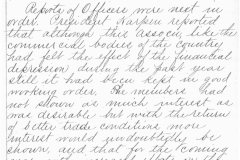 Reports of Officers were next in
order. President Karpen reported
that although this Associn, like the
commercial bodies of the Country
had felt the effect of the financial
depression during the past year
still it had been kept in good
working order. The members had
not shown as much interest as
was desirable but with the return
of better trade conditions more
interest would undoubtedly be
shown, and that for the coming